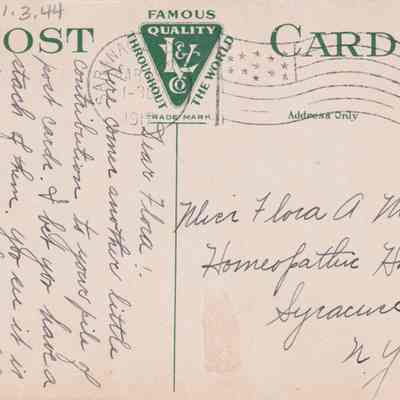 1.3.44
POST CARD
FAMOUS
QUALITY
THROUGHOUT THE WORLD
V & Co
TRADE MARK
Address Only
Dear Flora!:
Here comes another little
contribution to your pile of
post cards. I bet you have a
stack of them. you
it is
Miss Flora A M
Homeopathic Ho
Syracuse
N.Y